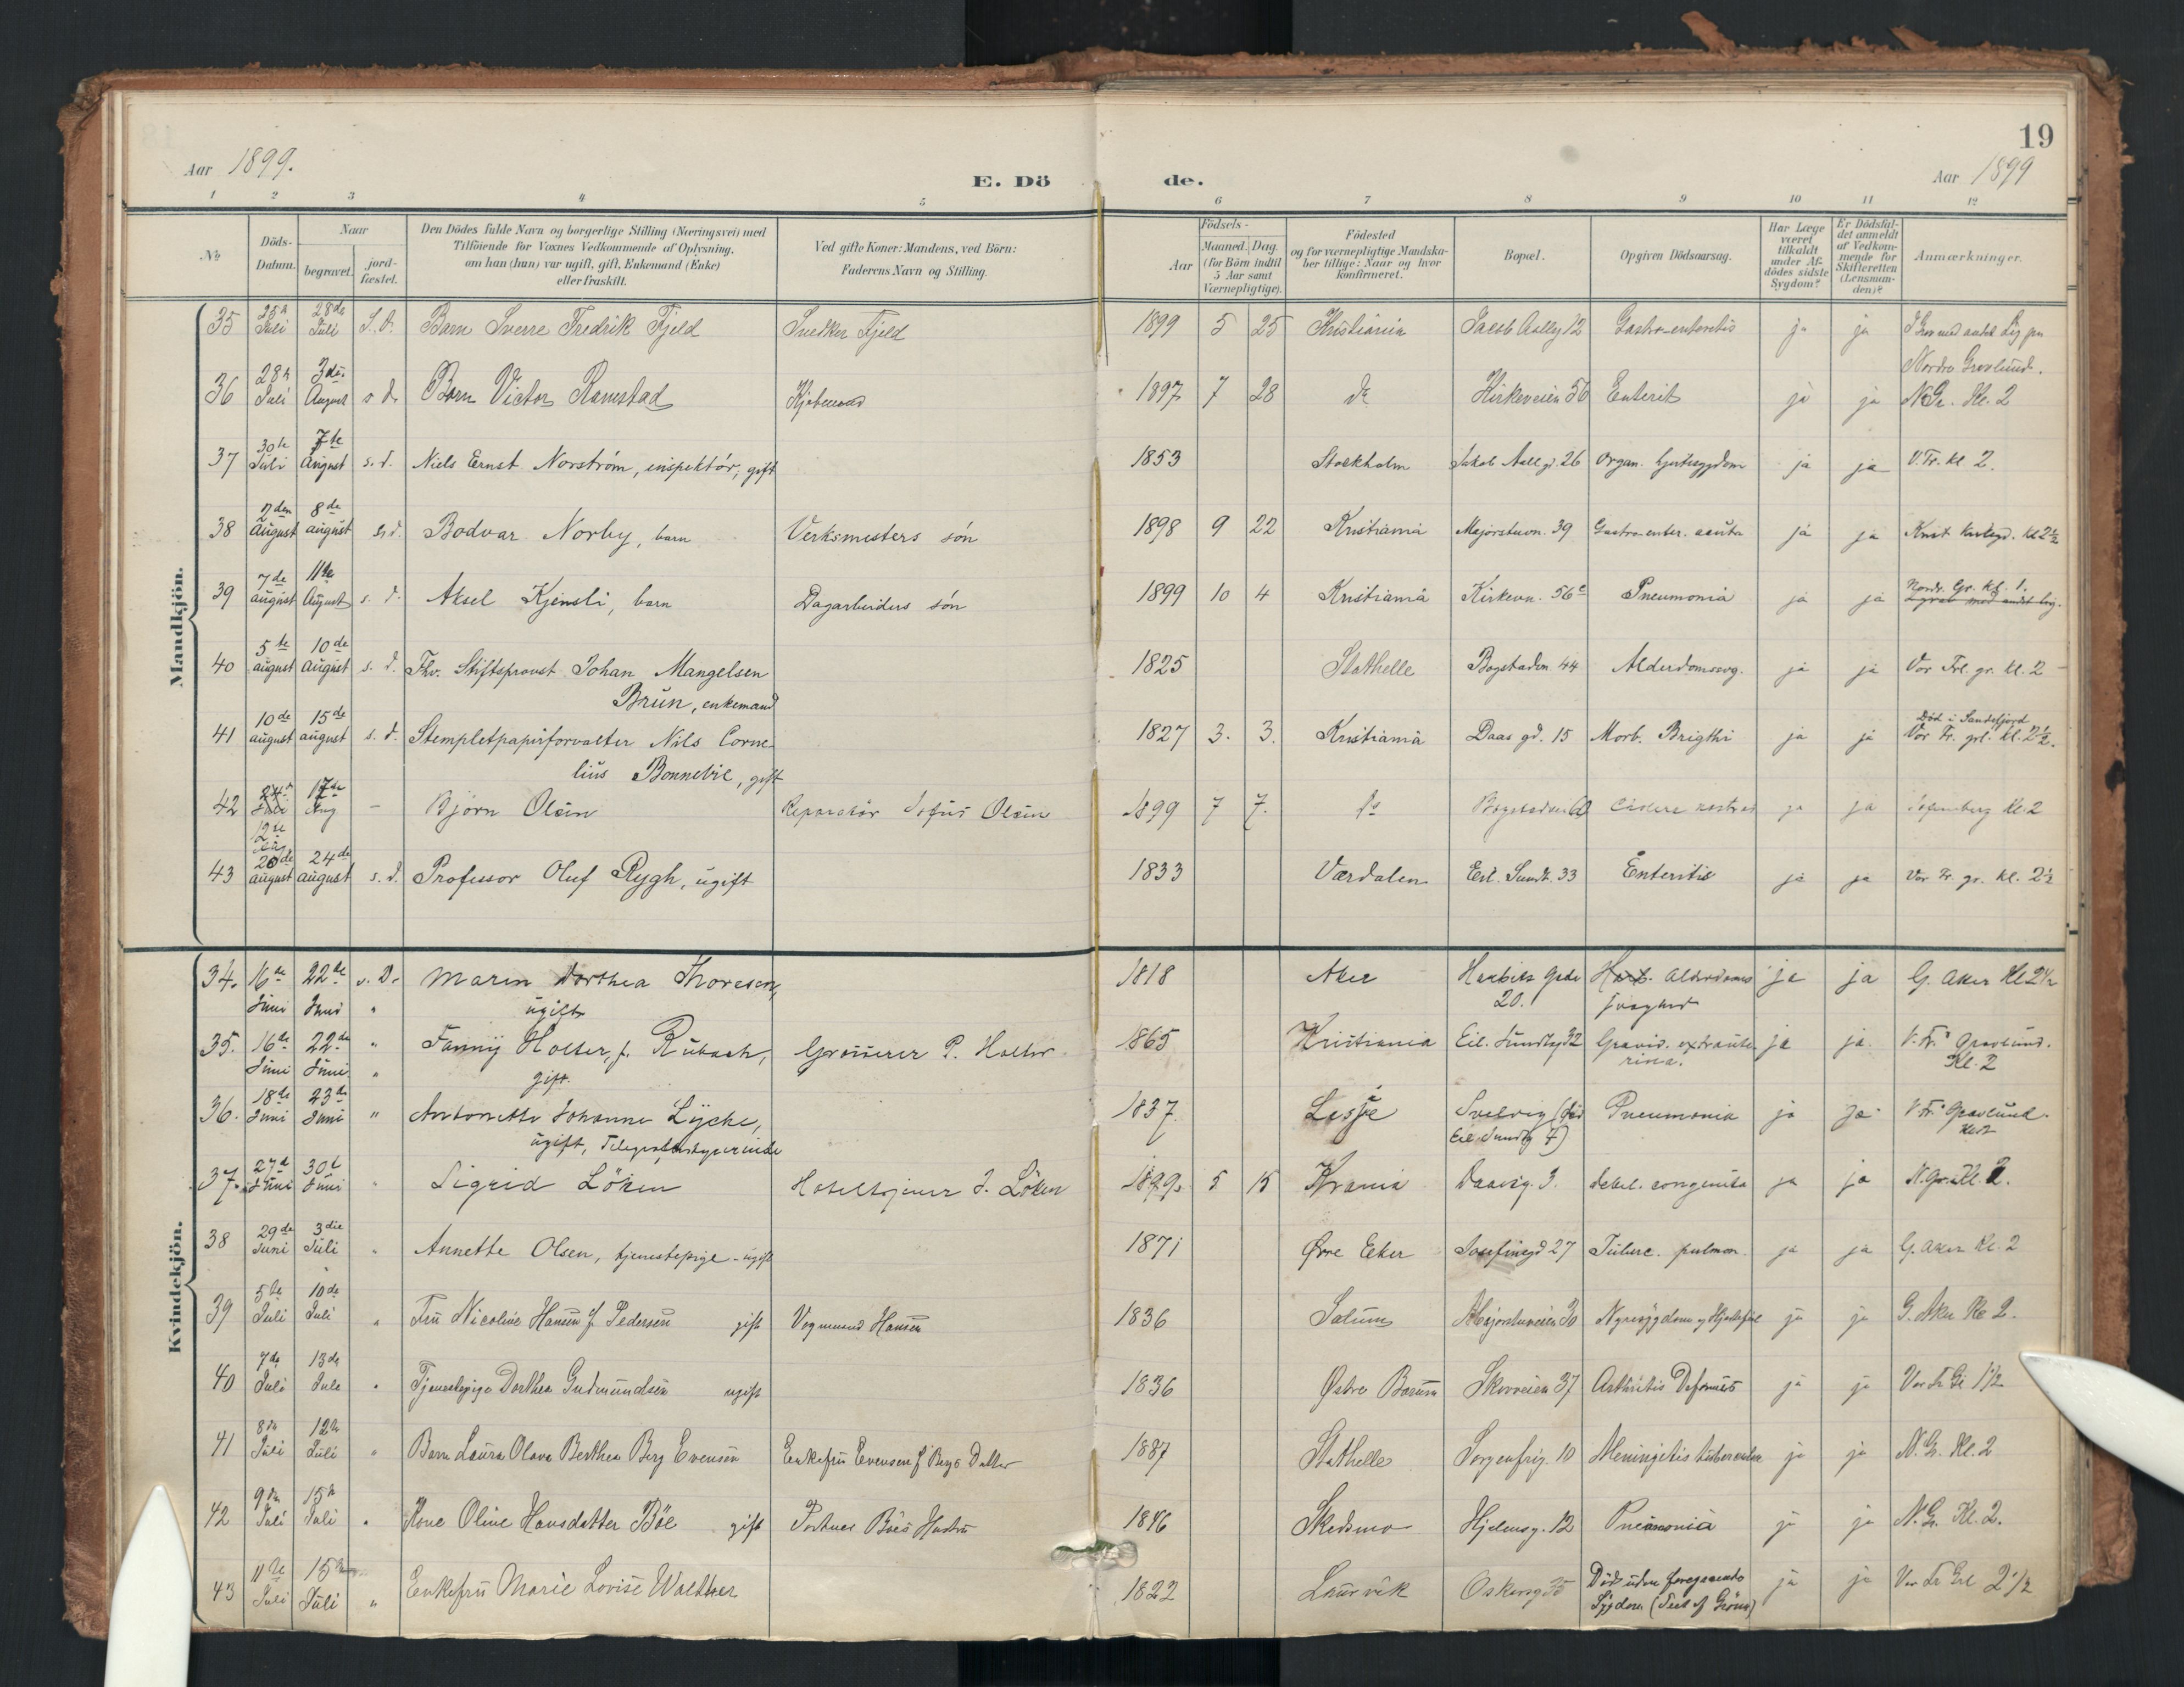 19
Aar 1899.
E. Dö
de.
Aar 1899
1 2 3 4 5 6 7 8 9 10 11 12
No
Döds-Datum.
Naar
begravet.
jord-fæstet.
Den Dödes fulde Navn og borgerlige Stilling (Næringsvei) med
Tilföiende for Voxnes Vedkommende af Oplysning,
om han (hun) var ugift, gift, Enkemand (Enke)
eller fraskilt.
Ved gifte Koner: Mandens, ved Börn:
Faderens Navn og Stilling.
Födsels-
Aar
Maaned. Dag.
(for Börn indtil
5 Aar samt
Værnepligtige).
Födested
og for værnepligtige Mandska-
ber tillige: Naar og hvor
konfirmeret.
Bopæl.
Opgiven Dödsaarsag.
Har Læge
været
tilkaldt
under Af-
dödes sidste
Sygdom?
Er Dödsfal-
det anmeldt
af Vedkom-
mende for
Skifteretten
(Lensman-
den)?
Anmærkninger.
Mandkjön.
35 25de Juli 28de Juli S. D. Barn Sverre Fredrik Fjeld Snedker Fjeld 1899 5 25 Kristiania Jacob Aallg 12 Gastro-enteritis ja ja I Grav med andet Lig paa
Nordre Gravlund.
36 28de Juli 3die August s d. Barn Victor Ramstad Kjøbmand 1897 7 28 do Kirkeveien 56 Enterit ja ja N. Gr. Kl. 2
37 30te Juli 7de August s. d. Niels Ernst Norström, inspektör, gift 1853 Stockholm Jakob Aall gd. 26 Organ. hjertesygdom ja ja V. Fr. kl. 2.
38 2den August 8de august s. d. Bodvar Norby, barn Verksmesters sön 1898 9 22 Kristiania Majorstuvn. 39 Gastro-enter. acuta ja ja Krist. kl 2½
39 7de august 11te August s. d. Aksel Kjensli, barn Dagarbeiders sön 1899 10 4 Kristiania Kirkevn. 56c Pneumonia ja ja Nordr. Gr. kl. 1.
I grav med andet lig.
40 5te august 10de August s. d. Fhv. Stiftsprovst Johan Mangelsen
Brün, enkemand 1825 Stathelle Bogstadvn. 44 Alderdomssvag. ja ja Vor Frl. gr. kl. 2
41 10de august 15de august s. d. Stempletpapirforvalter Nils Corne-
lius Bonnevie, gift 1827 3. 3. Kristiania Daas gd. 15 Morb. Brigthi ja ja Död i Sandefjord
Vor Fr. grl. kl. 2½.
42 24de Juli 12te Aug 17de Aug - Björn Olsen Reparatör Sofus Olsen 1899 7 7. do ja ja Sofienberg Kl. 2
43 20de august 24de august s. d. Professor Oluf Rygh, ugift 1833 Værdalen Eil. Sundt. 33 Enteritis ja ja Vor Fr. gr. kl. 2½
Kvindekjön.
34. 16de Juni 22de Juni s. D. Maren Dorthea Thoresen,
ugift 1818 Aker 20. Alderdoms
svaghed ja ja G. Aker Kl 2½
35. 16de Juni 22de Juni " Fanny Holter, f. Rubach,
gift. Grosserer P. Holter 1865 Kristiania Eil. Sundtgd 32 Gravid. extraute-
rina. ja ja. V. Fr.s Gravlund.
Kl. 2
36. 18de Juni 23de Juni " Antonette Johanne Lyche,
ugift, Telegrafbestyrerinde 1837. Lesje Svelvig (før
Eil. Sundtg 7) Pneumonia ja ja V. Fr.s Gravlund.
Kl 2
37. 27de Juni 30te Juni " Sigrid Löken Hoteltjener J. Löken 1899. 5 15 Krania Daasg. 3. debil. congenita ja ja N. Gr. Kl. 2.
38 29de Juni 3die Juli " Annette Olsen, tjenestepige - ugift 1871 Øvre Eeker Josefinegd 27 Tuberc. pulmon. ja ja G. Aker Kl. 2
39 5te Juli 10de Juli " Fru Nicoline Hansen f. Pedersen gift Vognmand Hansen 1836 Solum Majorstuveien 30 Nyresygdom og Hjertefeil ja ja G. Aker Kl 2.
40 7de Juli 13de Juli " Tjenestepige Dorthea Gudmundsen ugift 1836 Østre Bærum Skovveien 37 Arthritis Deformans ja ja Vor Fr Gr 1½
41 8de Juli 12te Juli " Barn Laura Olava Berthea Berg Evensen Enkefru Evensen f Bergs Datter 1887 Stathelle Sorgenfrig. 10 Meningitis tuberculos ja ja N. Gr. Kl. 2
42 9de Juli 15de Juli " Kone Oline Hansdatter Böe gift Portner Böes Hustru 1846 Skedsmo Hjelmsg. 12 Pneumonia ja ja N. Gr. Kl. 2.
43 11te Juli 15de Juli " Enkefru Marie Lovise Waldhar 1822 Laurvik Oskarsg 35 Död uden foregaaende
Sygdom ja ja Vor Fr Grl 2½